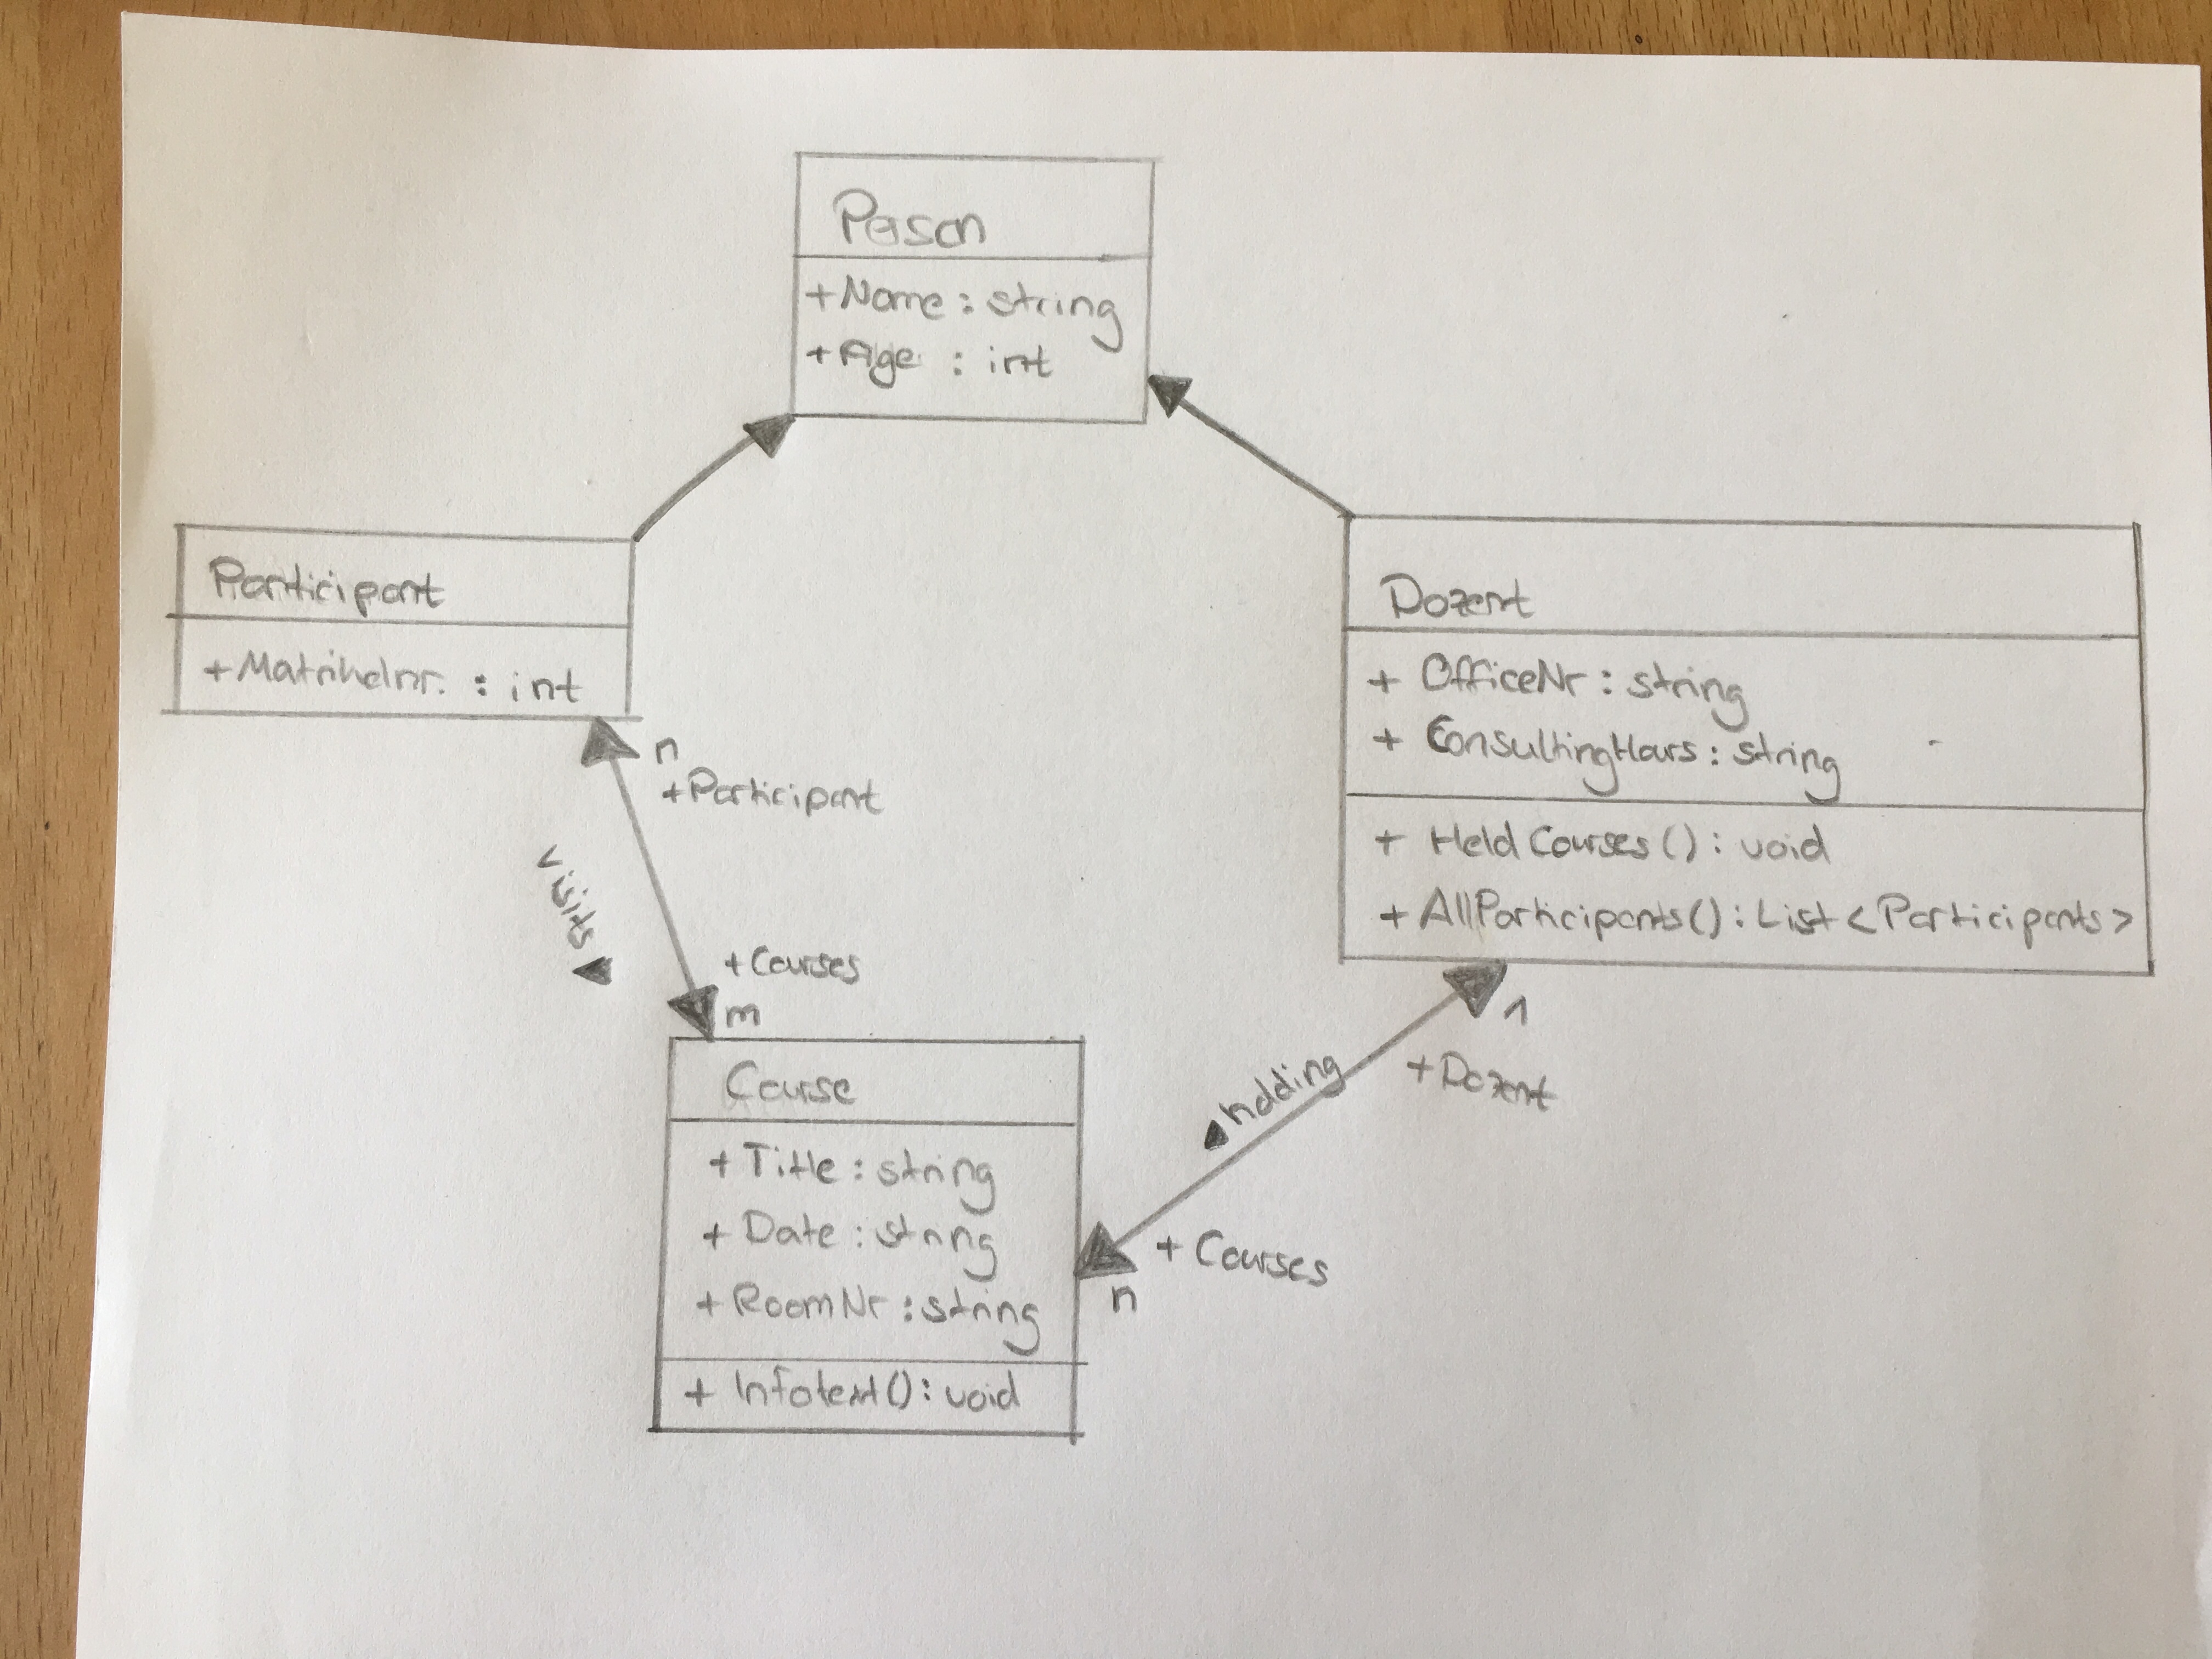 Person
+Name : string
+Age : int
Participant
+Matrikelnr. : int
Dozent
+ OfficeNr : string
+ ConsultingHours : string
+ HeldCourses() : void
+ AllParticipants() : List<Participants>
n
+Participant
visits
+Courses
m
1
+Dozent
holding
+ Courses
n
Course
+ Title : string
+ Date : string
+ RoomNr : string
+ Infotext() : void